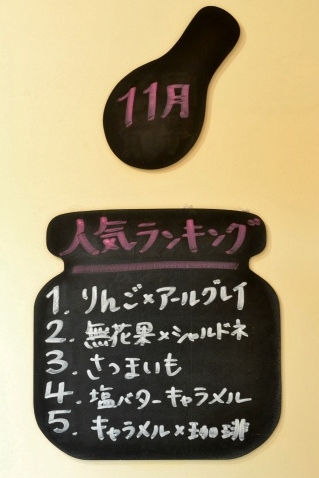 11月
人気ランキング
1. りんご×アールグレイ
2. 無花果×シャルドネ
3. さつまいも
4. 塩バターキャラメル
5. キャラメル×珈琲